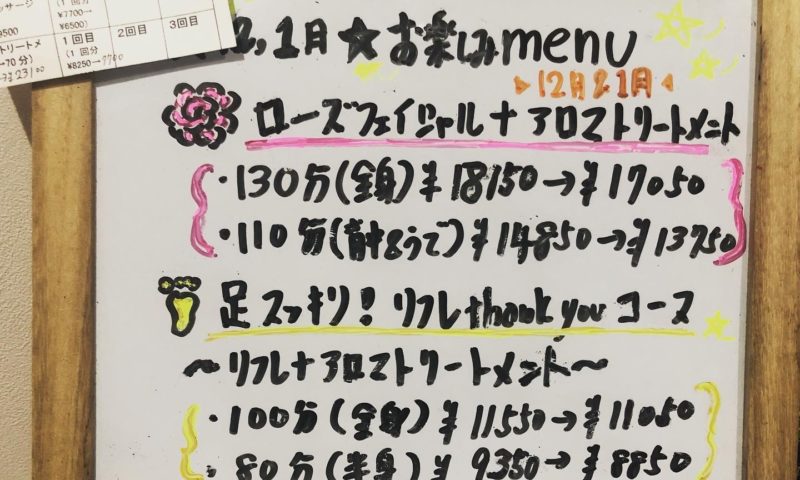 ッサージ
(1回分
¥7700→
¥6500)
9500
トリートメ
1回目
2回目
3回目
→70分)
(1回分
¥8250→7700
23100
2,1月☆お楽しみmenu
12月&1月
ローズフェイシャル+アロマトリートメント
・130分(全身)¥18150→¥17050
・110分(背&うで)¥14850→¥13750
足スッキリ!リフレthank youコース
〜リフレ+アロマトリートメント〜
・100分(全身)¥11550→¥11050
・80分(半身)¥9350→¥8850